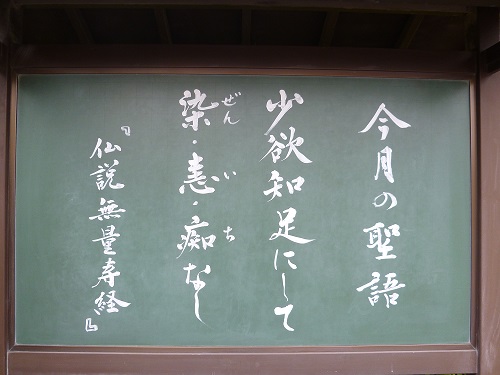 今月の聖語
少欲知足にして
染・恚・痴なし
ぜん い ち
『仏説無量寿経』